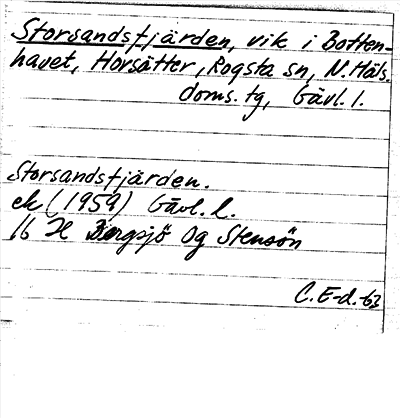 Storsandsfjärden, vik i Botten-
havet, Hårsätter, Rogsta sn, N. Häls.
doms. tg, Gävl. l.
Storsandsfjärden.
ek (1959) Gävl. l.
16 H Bergsjö Og Stensön
C. E-d. -63